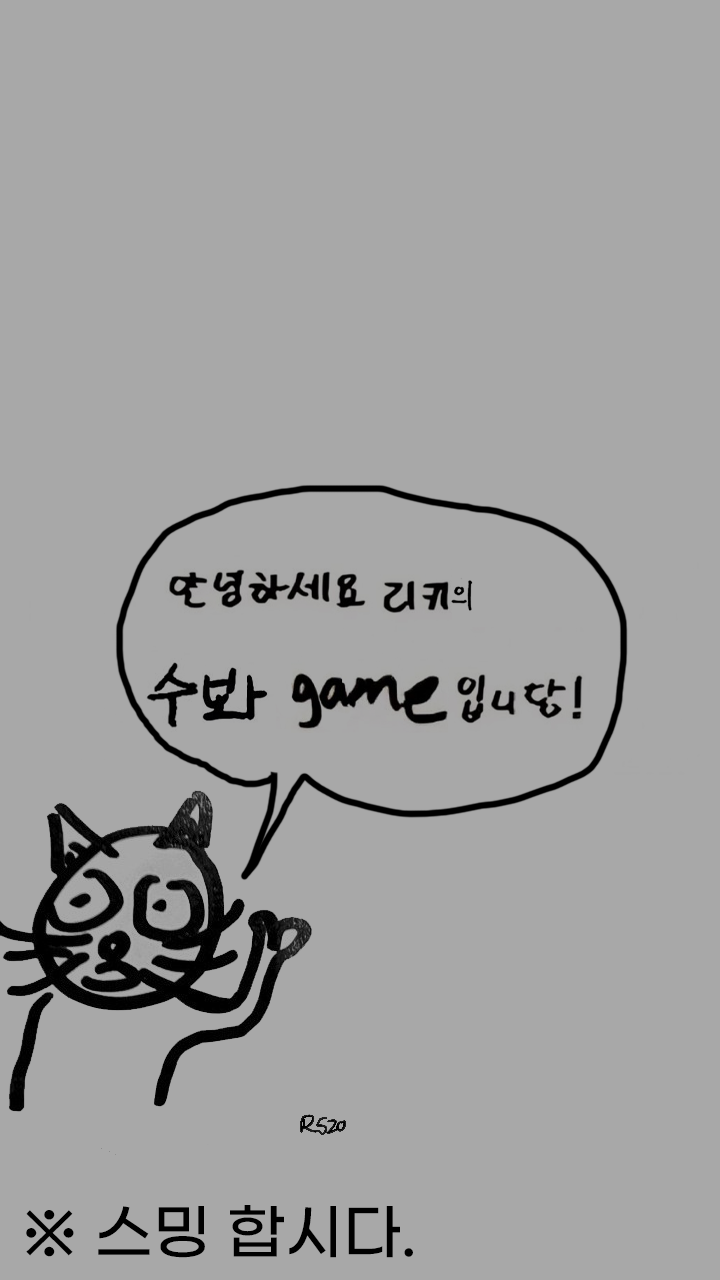 안녕하세요 리키의
수봐 game입니답!
R520
※ 스밍 합시다.